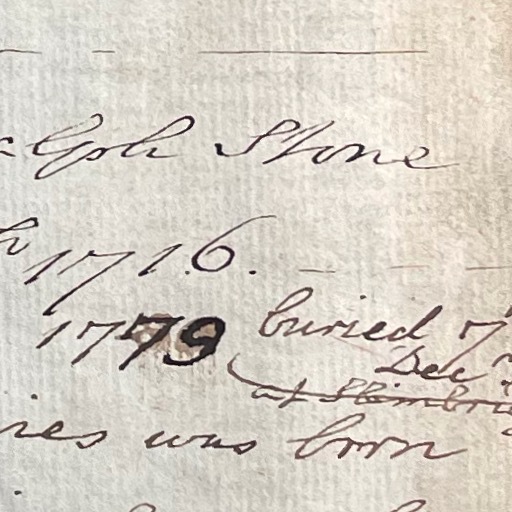 alph Stone
h 1716.
1779 buried 7
Decr
at Slimbri
ies was born